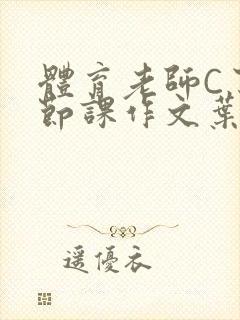 體育老師C了
節課作文葉
遥優衣